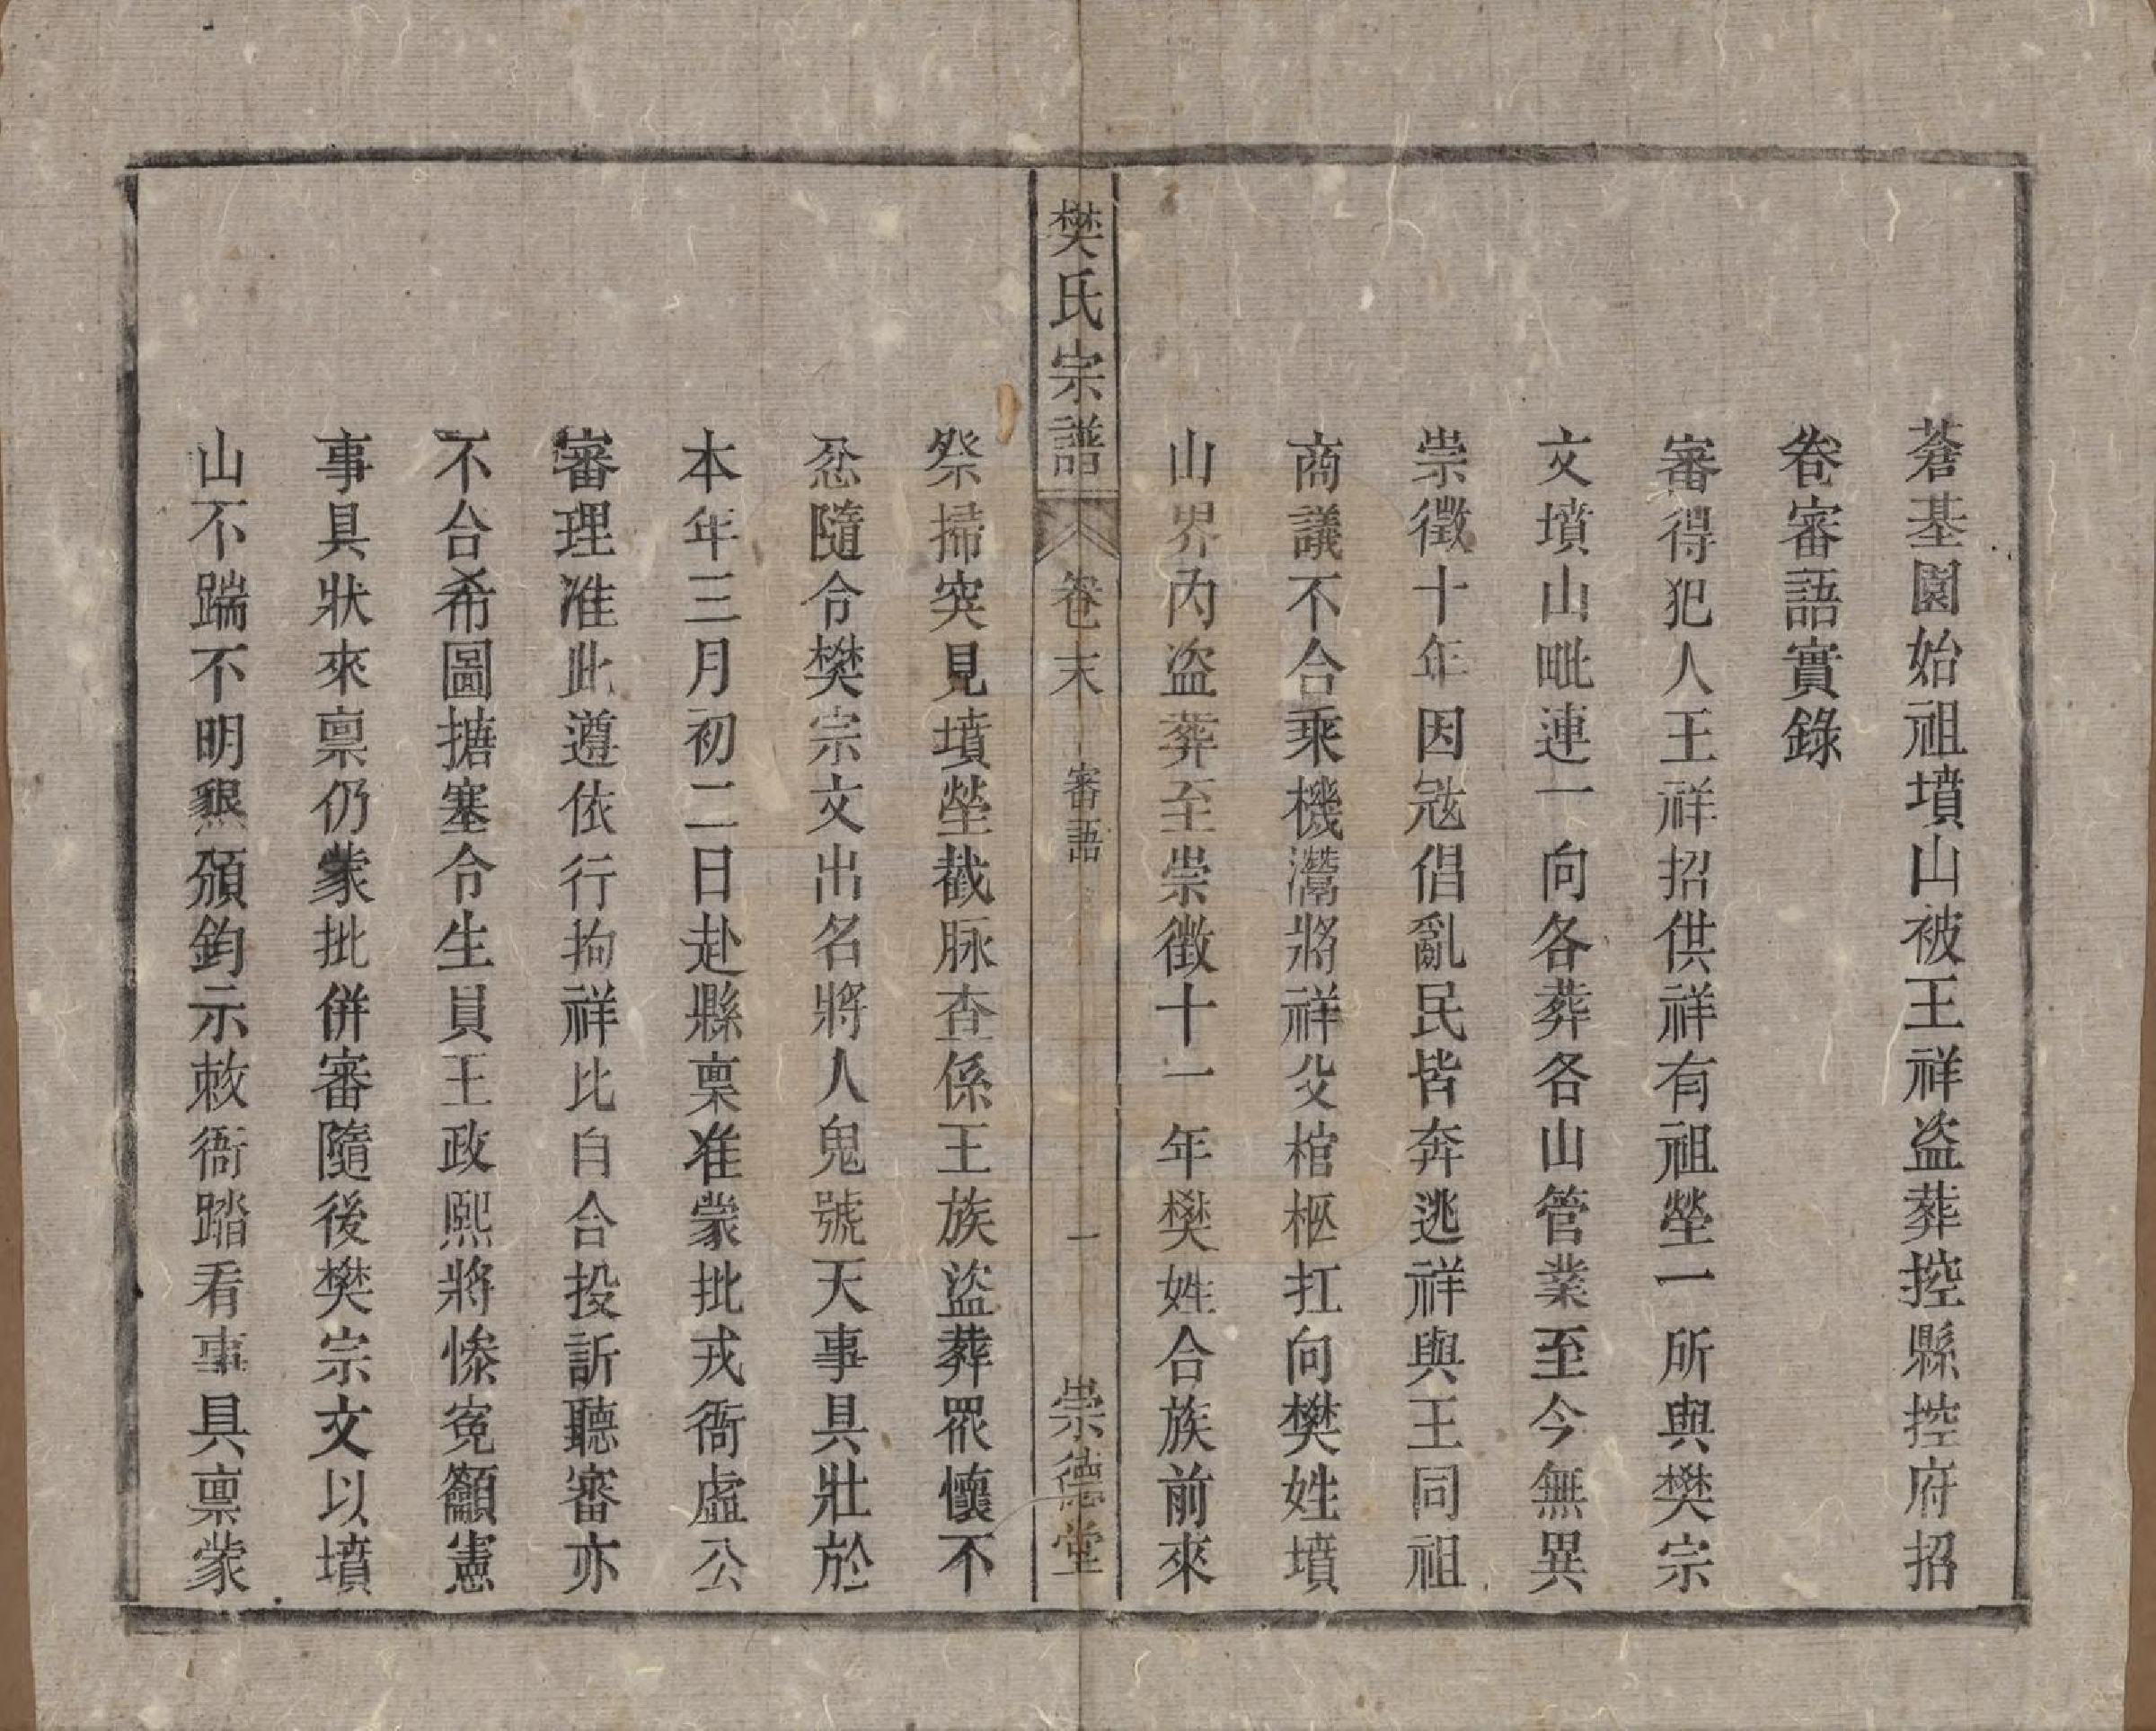 蒼基園始祖墳山被王祥盗葬控縣控府招
卷審語實錄
審得犯人王祥招供祥有祖塋一所與樊宗
文墳山毗連一向各葬各山管業至今無異
崇徵十年因冦倡亂民皆奔逃祥與王同祖
商議不合乘機灊將祥父棺柩扛向樊姓墳
山界內盗葬至崇徵十一年樊姓合族前來
樊氏宗譜
卷末
審語
一
崇德堂
祭掃突見墳塋截脉查係王族盜葬眾懷不
忿隨令樊宗文出名將人鬼號天事具壯於
本年三月初二日赴縣稟准蒙批戎衙盧公
審理准此遵依行拘祥比自合投訴聽審亦
不合希圖搪塞令生員王政熙將慘寃籲憲
事具狀來稟仍蒙批併審隨後樊宗文以墳
山不踹不明懇頒鈞示敕衙踏看事具稟蒙